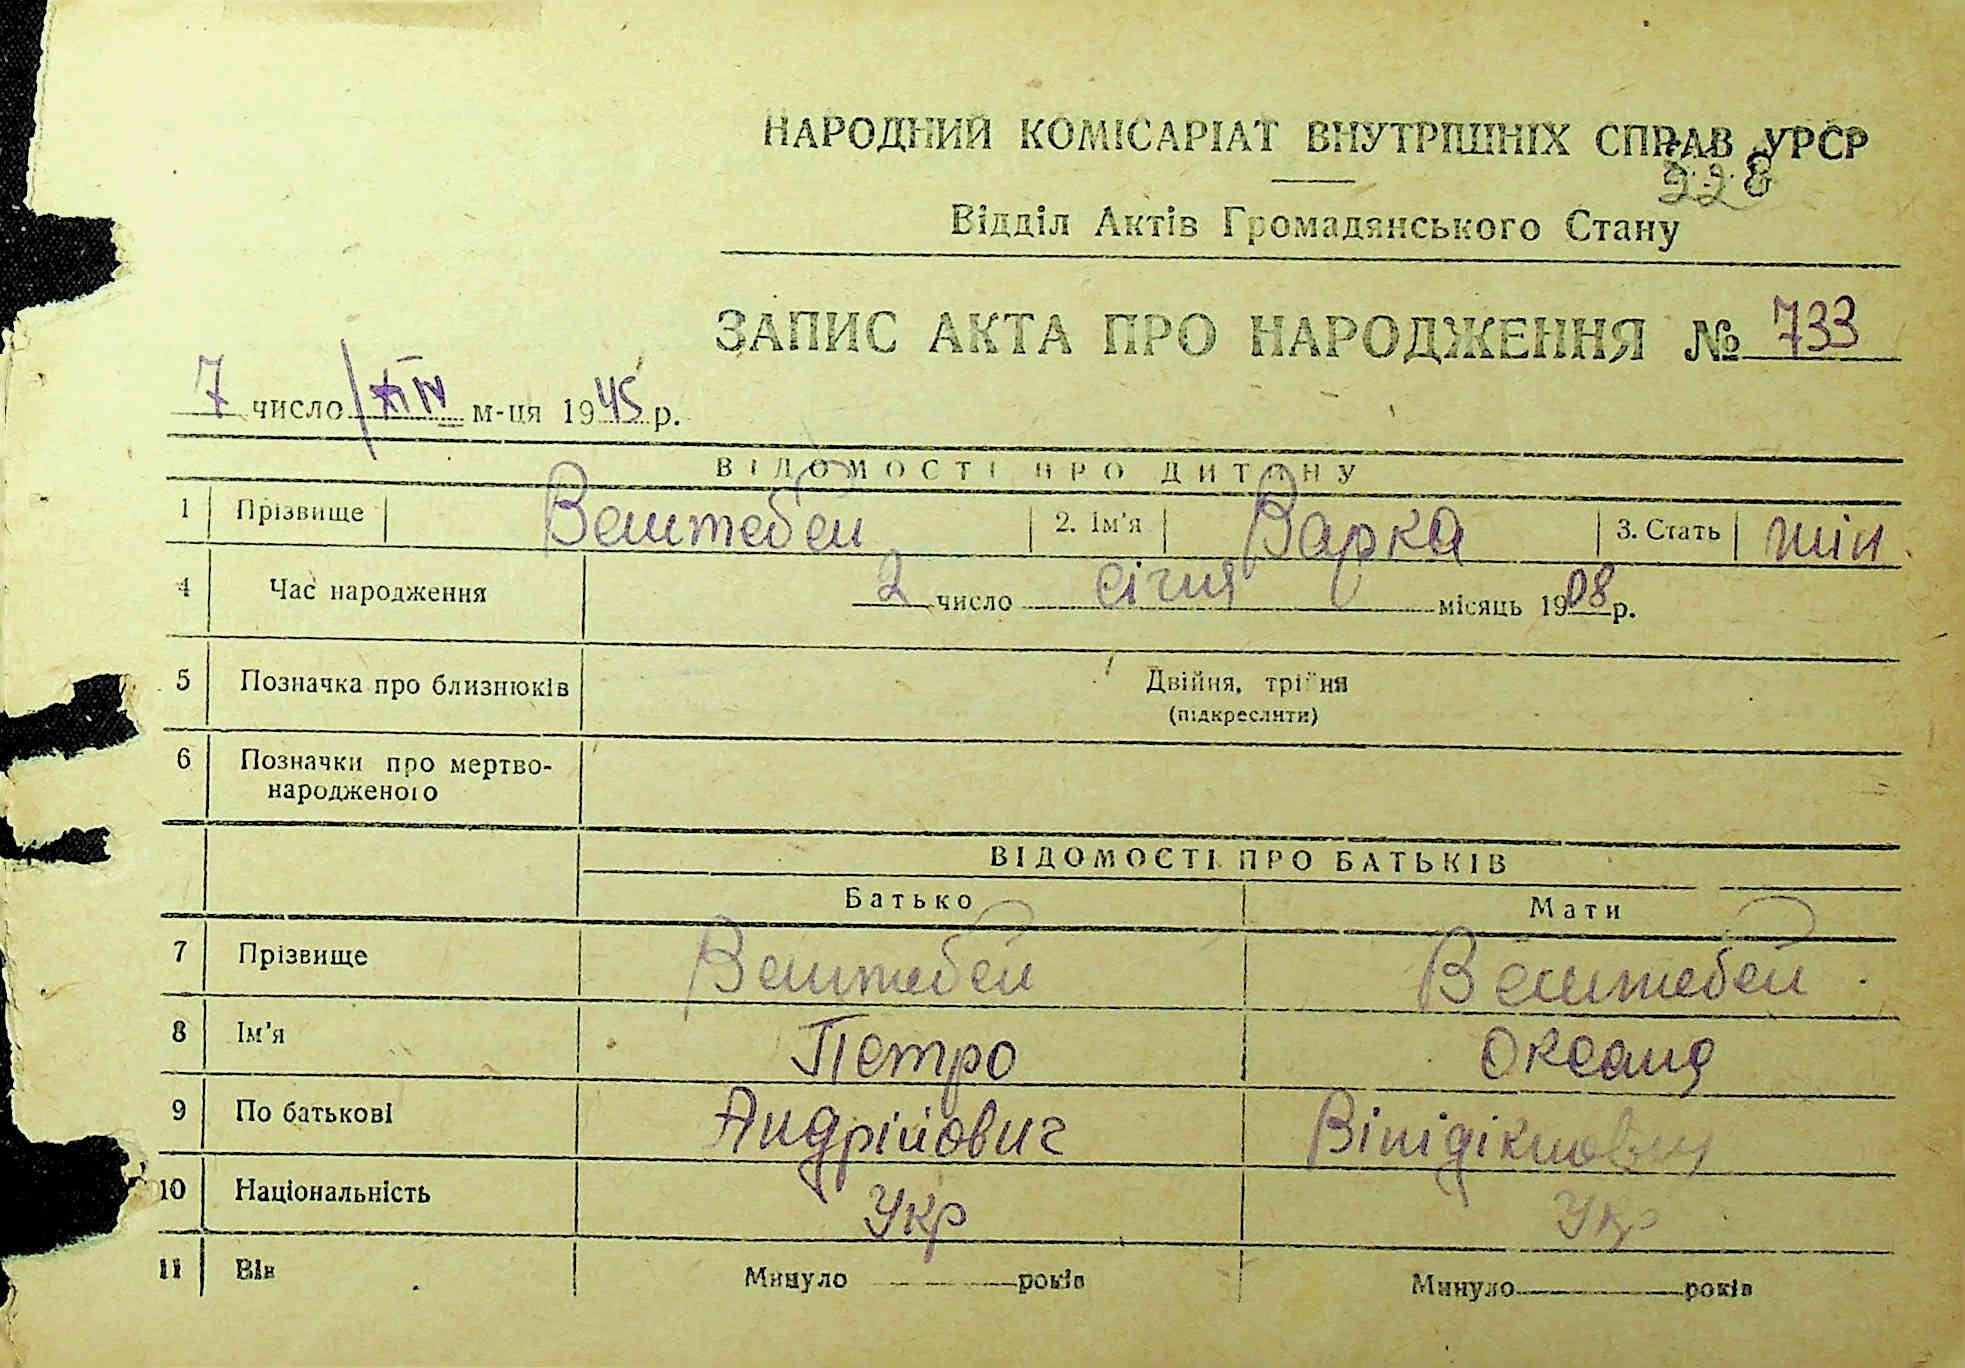 НАРОДНИЙ КОМІСАРІАТ ВНУТРІШНІХ СПРАВ УРСР
228
Відділ Актів Громадянського Стану
ЗАПИС АКТА ПРО НАРОДЖЕННЯ № 733
7 число IV м-ця 1945 р.
ВІДОМОСТІ ПРО ДИТИНУ
1 Прізвище Вештебей 2. Ім'я Варка 3. Стать жін
4 Час народження 2 число січня місяць 1908 р.
5 Позначка про близнюків Двійня, трійня
(підкреслити)
6 Позначки про мертво-
народженого
ВІДОМОСТІ ПРО БАТЬКІВ
Батько Мати
7 Прізвище Вештебей Вештебей
8 Ім'я Петро Оксана
9 По батькові Андрійович
10 Національність Укр Укр
11 Вік Минуло років Минуло років